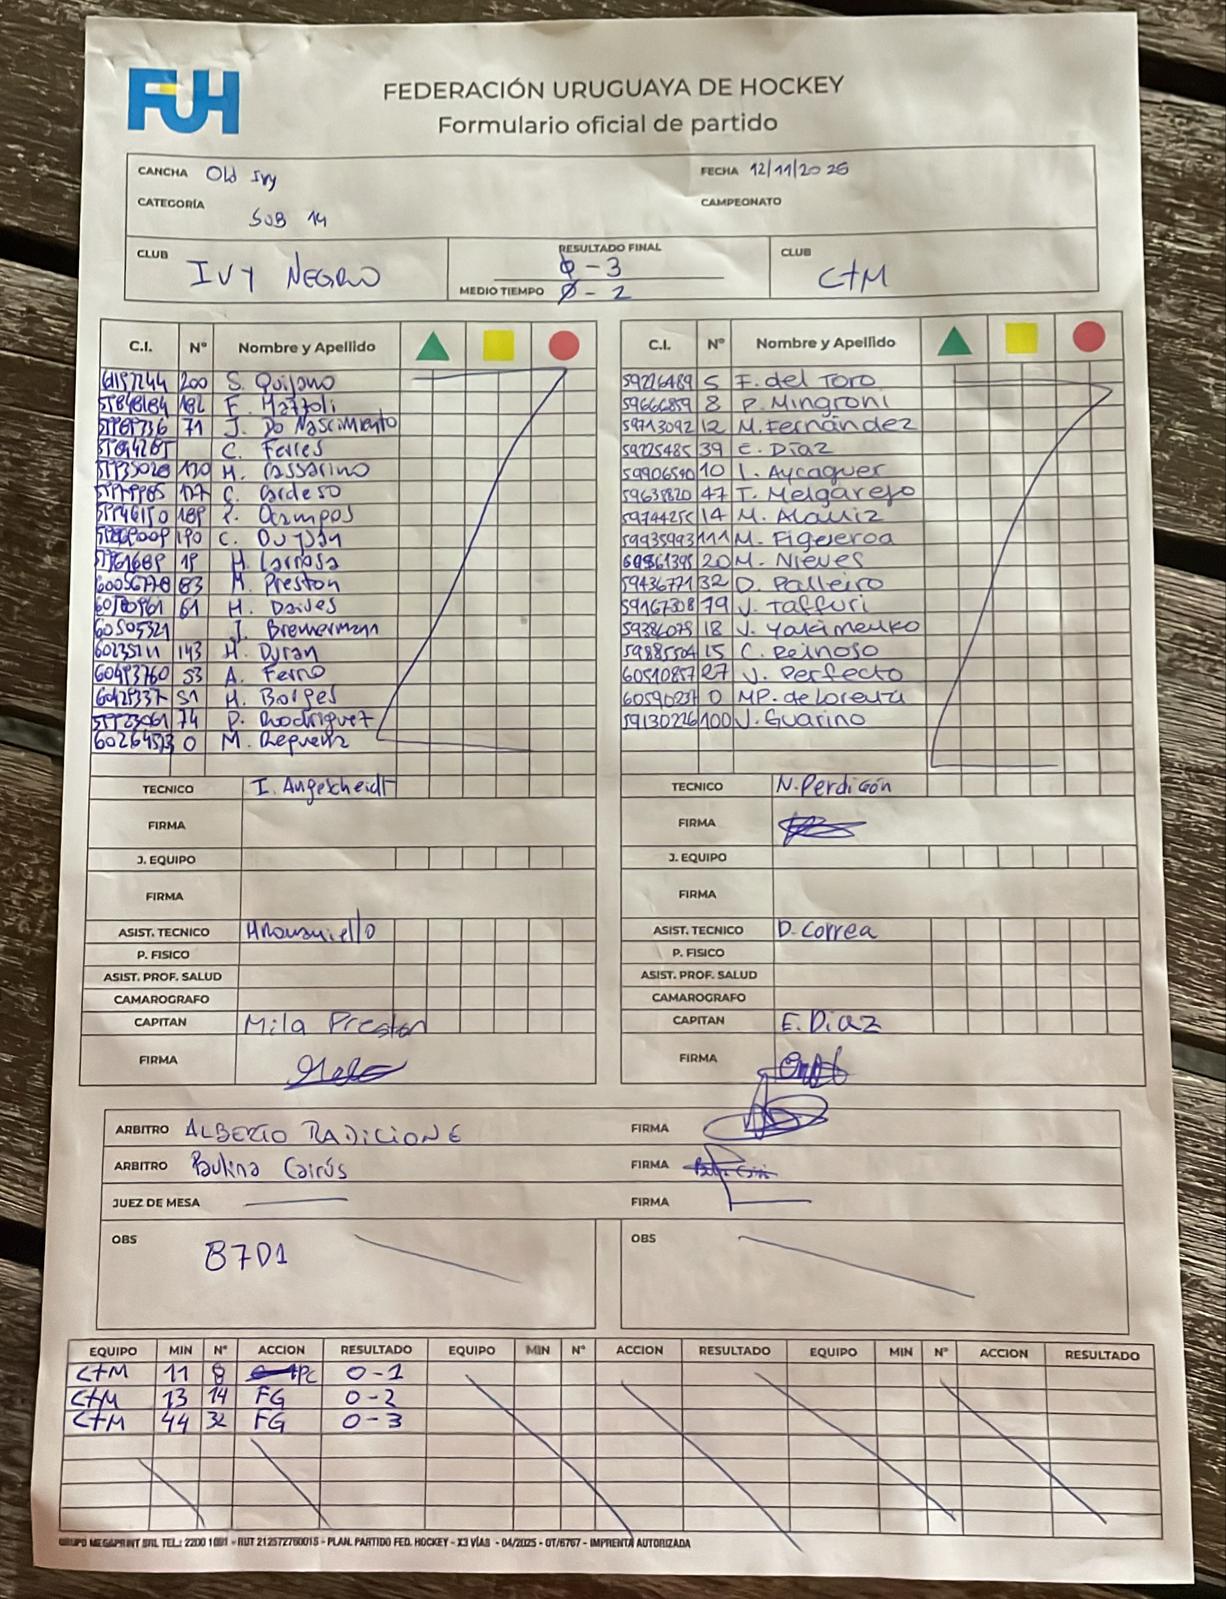 FUH
FEDERACIÓN URUGUAYA DE HOCKEY
Formulario oficial de partido
CANCHA Old Ivy FECHA 12/11/2025
CATEGORÍA SUB 14 CAMPEONATO
CLUB IVY NEGRO RESULTADO FINAL 0-3 CLUB C+M
MEDIO TIEMPO 0-2
C.I. Nº Nombre y Apellido C.I. Nº Nombre y Apellido
200 S. Quijano 59226489 5 F. del Toro
182 F. Mattoli 59666859 8 P. Mingroni
71 J. Do Nascimiento 59713092 12 M. Fernández
C. Ferres 59225485 39 E. Díaz
170 M. Cassarino 59906540 10 I. Aycaguer
C. Cardeso 59635820 47 T. Melgarejo
189 P. Ocampos 14 M. Alaniz
190 C. Duran 59935993 111 M. Figeroa
19 M. Larrosa 20 M. Nieves
83 M. Preston 59436771 32 D. Palleiro
61 M. Davies 59167308 79 J. Taffuri
60505321 J. Bremermann 18 V. Yakimenko
143 M. Duran 15 C. Reinoso
60493760 53 A. Ferro 60510857 27 J. Perfecto
51 M. Borges 0 MP. de Lorenzi
74 P. Rodriguez 59130226 100 J. Guarino
0 M.
TECNICO I. Angescheidt TECNICO N. Perdigón
FIRMA FIRMA
J. EQUIPO J. EQUIPO
FIRMA FIRMA
ASIST. TECNICO ASIST. TECNICO D. Correa
P. FISICO P. FISICO
ASIST. PROF. SALUD ASIST. PROF. SALUD
CAMAROGRAFO CAMAROGRAFO
CAPITAN Mila Preston CAPITAN E. Díaz
FIRMA FIRMA
ARBITRO ALBERTO RADICIONE FIRMA
ARBITRO Paulina Cairús FIRMA
JUEZ DE MESA FIRMA
OBS B7D1 OBS
EQUIPO MIN Nº ACCION RESULTADO EQUIPO MIN Nº ACCION RESULTADO EQUIPO MIN Nº ACCION RESULTADO
C+M 11 8 PC 0-1
C+M 13 14 FG 0-2
C+M 44 32 FG 0-3
GRUPO MEGAPRINT SRL TEL.: 2200 1001 - RUT 212572760015 - PLAN. PARTIDO FED. HOCKEY - X3 VÍAS - 04/2025 - OT/6767 - IMPRENTA AUTORIZADA